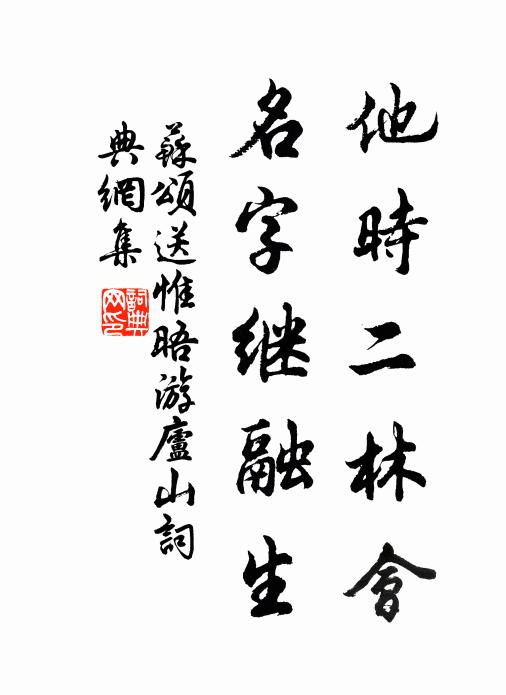 他時二林會
名字继融生
蘇頌送惟晤游廬山詞
典網集
詞典网印